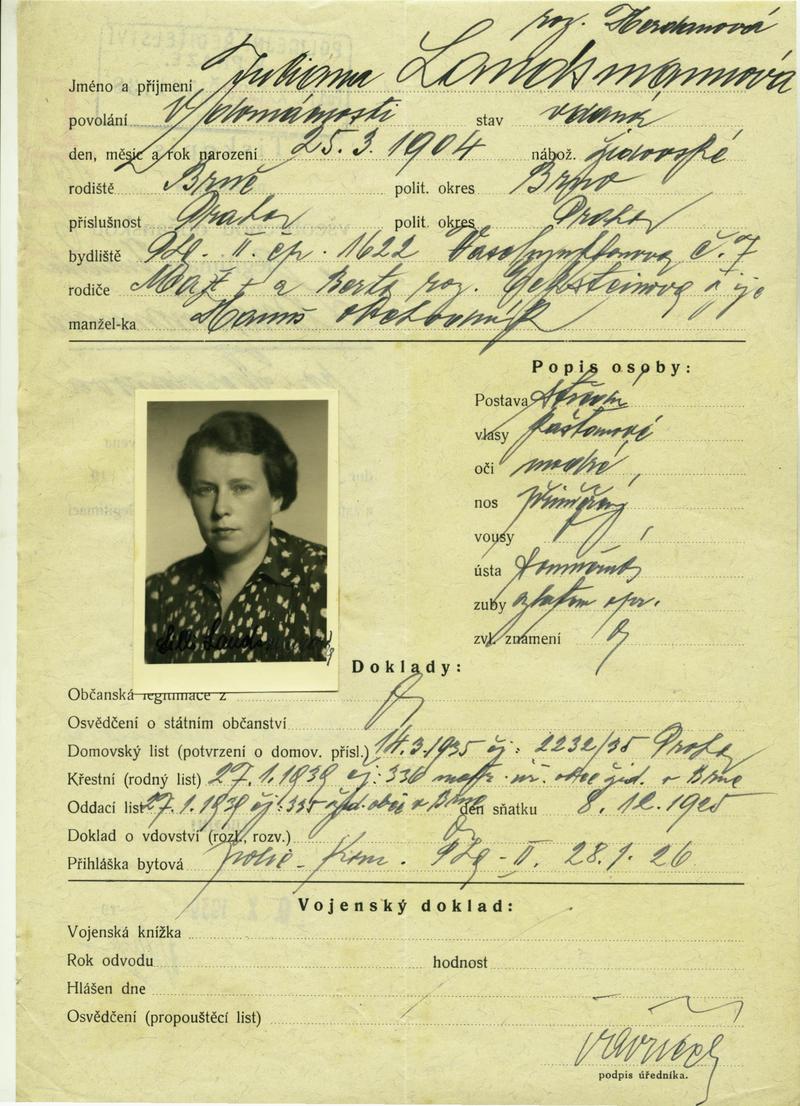 roz.
Jméno a příjmení Landsmannová
povolání V domácnosti stav vdaná
den, měsíc a rok narození 25. 3. 1904 nábož. židovské
rodiště Brně polit. okres Brno
příslušnost Praha polit. okres Praha
bydliště II. čp. 1622 č. 7
rodiče a Berta roz.
manžel-ka Hanuš obchodník
Popis osoby:
Postava střední
vlasy kaštanové
oči modré
nos přiměřený
vousy
ústa
zuby zlatem opr.
zvl. znamení
Doklady:
Občanská legitimace z
Osvědčení o státním občanství
Domovský list (potvrzení o domov. přísl.) 14.3.1935 čj: 2232/35 Praha
Křestní (rodný list) 27.1.1939 čj: 336 matr. úř. obce žid. v Brně
Oddací list 27.1.1939 čj: 335 žid. obce v Brně den sňatku 8. 12. 1925
Doklad o vdovství (rozl., rozv.)
Přihláška bytová polic. kom. II. 28.1.26
Vojenský doklad:
Vojenská knížka
Rok odvodu hodnost
Hlášen dne
Osvědčení (propouštěcí list)
podpis úředníka.